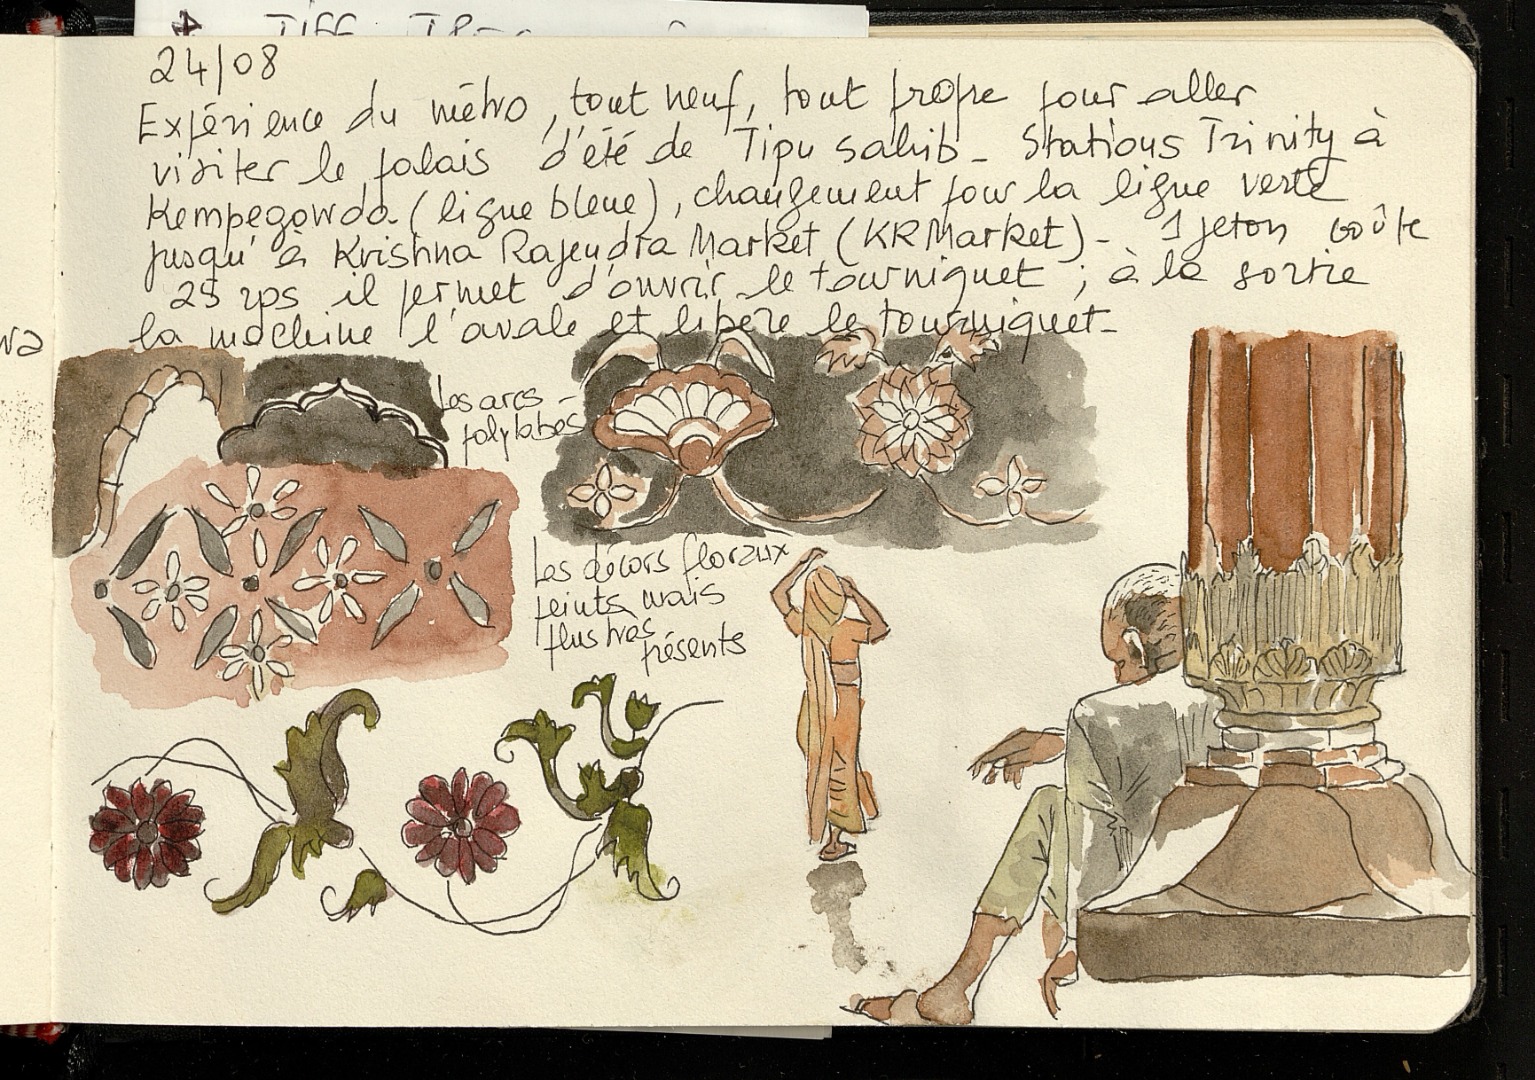 24/08
Expérience du métro, tout neuf, tout propre pour aller
visiter le palais d'été de Tipu Sahib - Stations Trinity à
Kempegowda (ligne bleue), changement pour la ligne verte
jusqu'à Krishna Rajendra Market (KR Market) - 1 jeton coûte
25 rps il permet d'ouvrir le tourniquet ; à la sortie
la machine l'avale et libère le tourniquet -
Les arcs
polylobés -
Les décors floraux
peints mais
plus très
présents